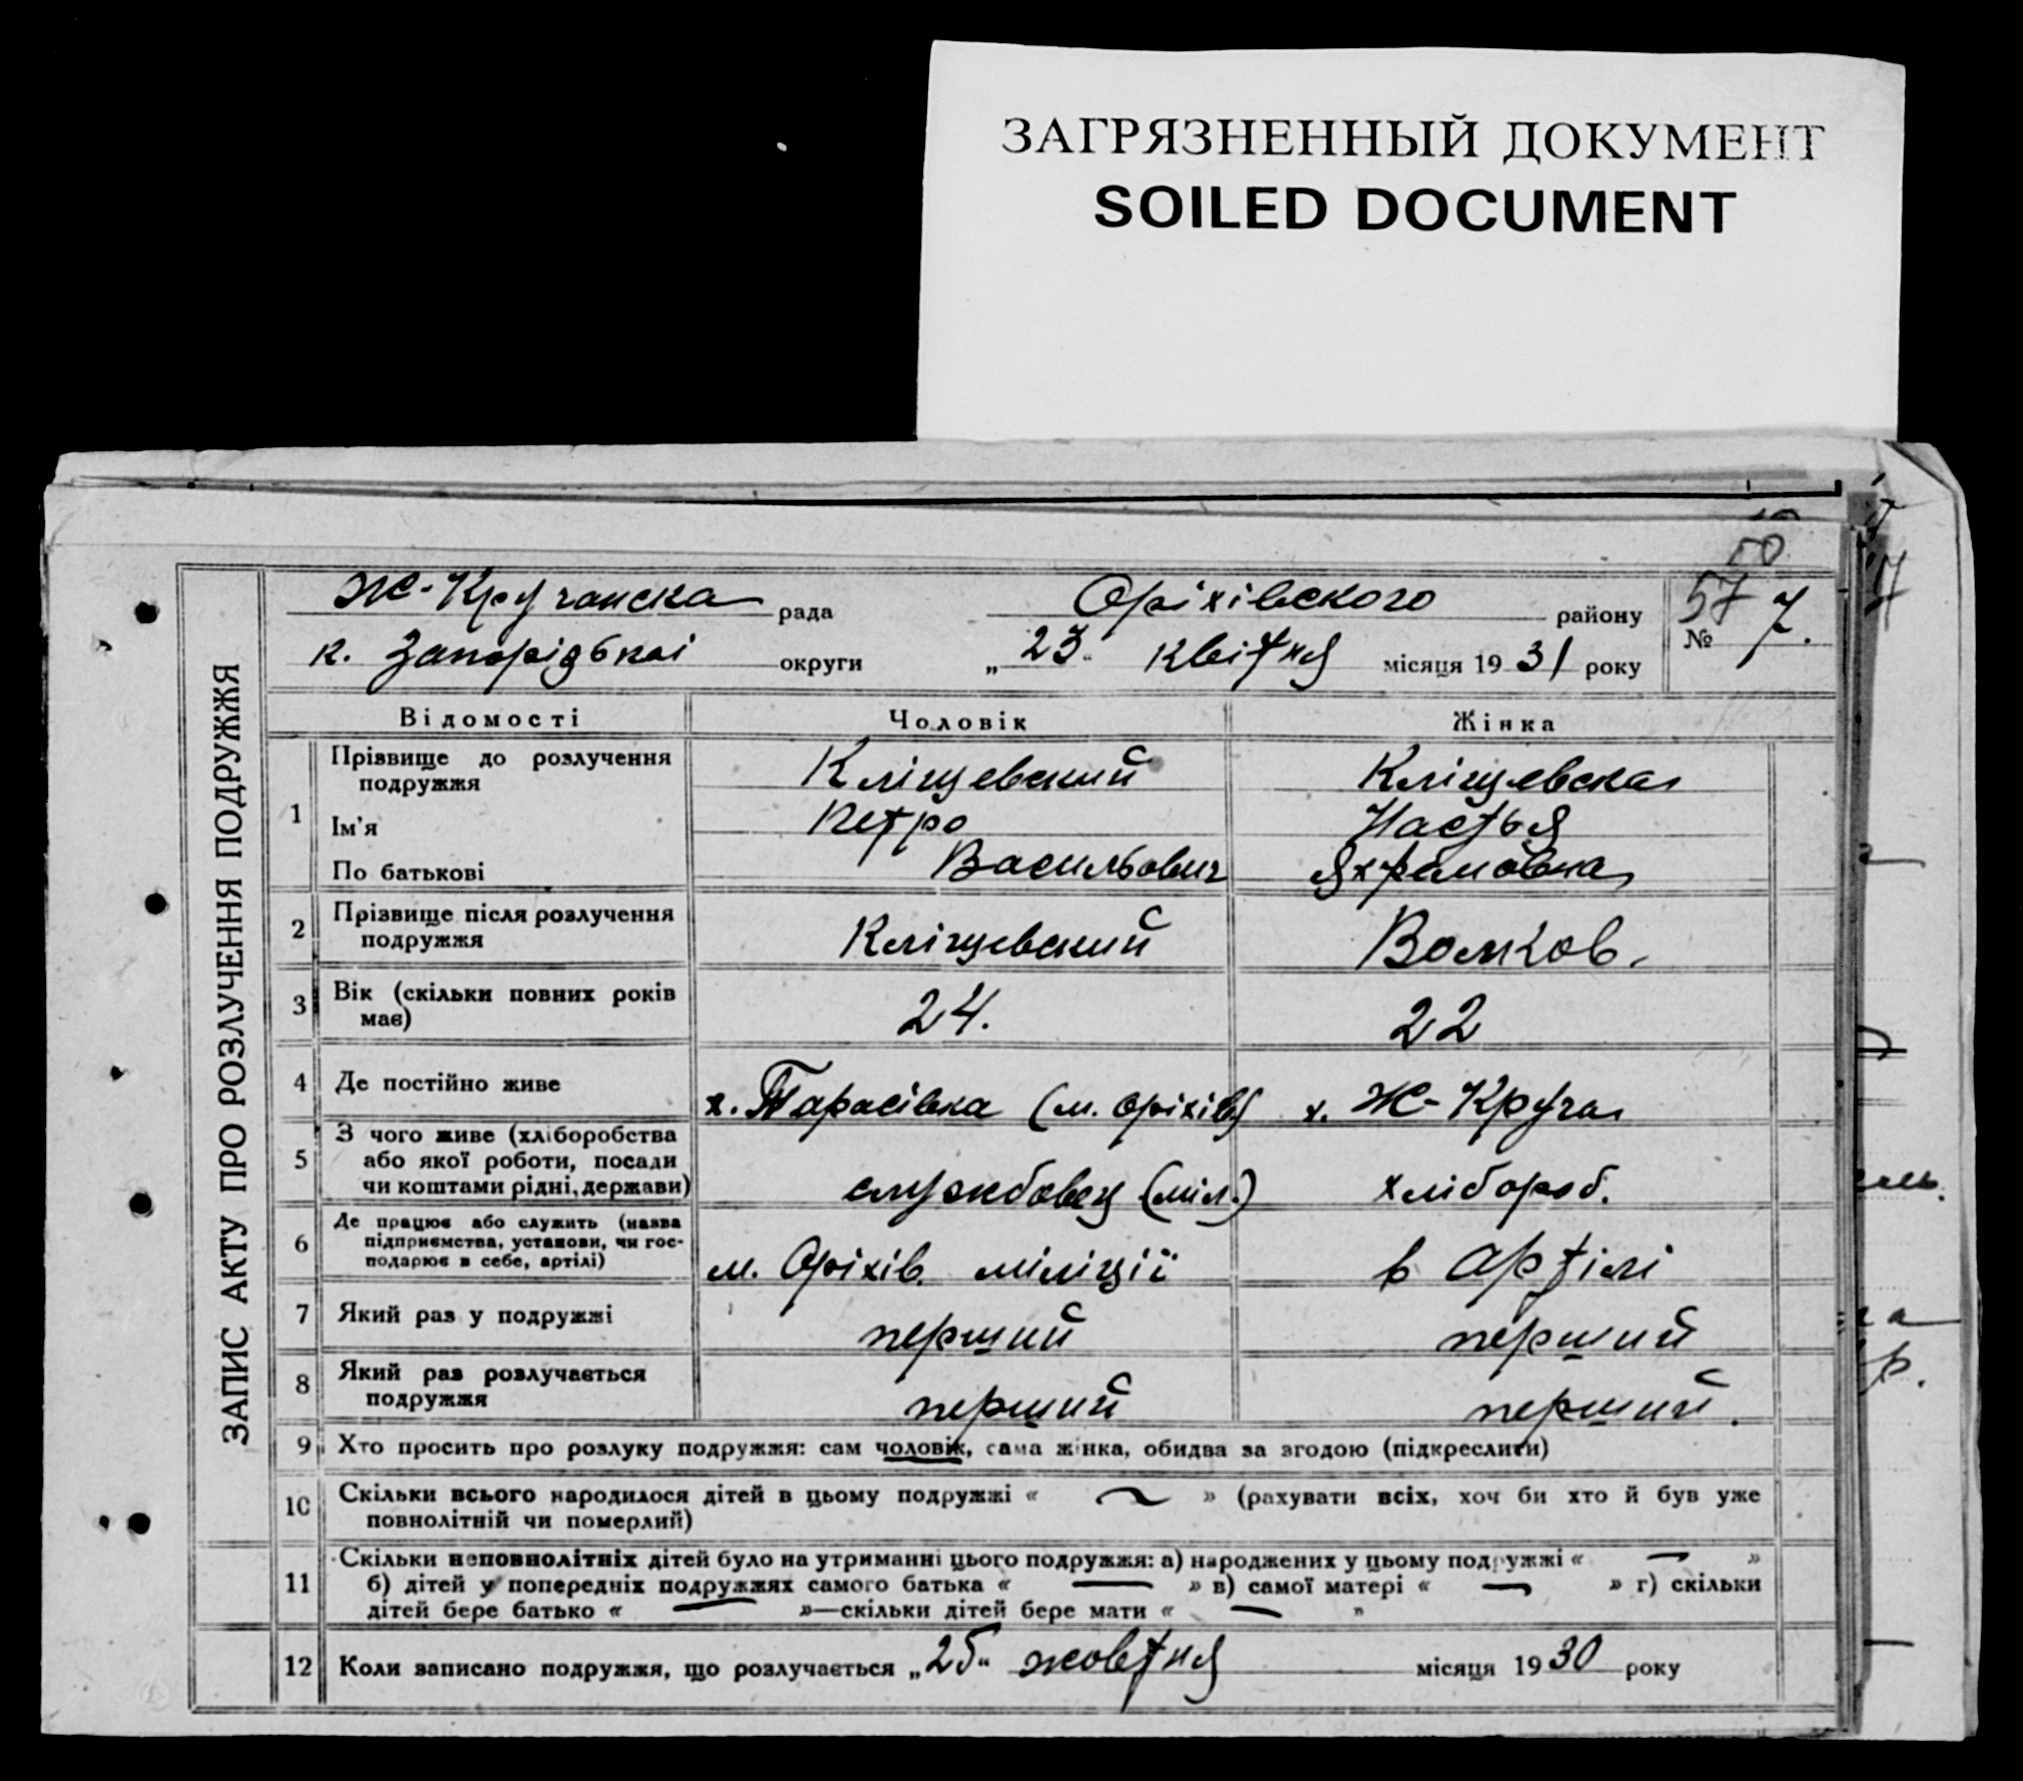 ЗАГРЯЗНЕННЫЙ ДОКУМЕНТ
SOILED DOCUMENT
50
ЗАПИС АКТУ ПРО РОЗЛУЧЕННЯ ПОДРУЖЖЯ
Ж-Кручанска рада Оріхівського району 57 № 7.
к. Запорідької округи „23" квітня місяця 1931 року
Відомості Чоловік Жінка
1 Прізвище до розлучення подружжя Кліщевський Кліщевская
Ім'я Петро Настья
По батькові Васильович
2 Прізвище після розлучення подружжя Кліщевський Волков.
3 Вік (скільки повних років має) 24. 22
4 Де постійно живе х. Тарасівка (м. Оріхів) х. Ж-Круча
5 З чого живе (хліборобства або якої роботи, посади чи коштами рідні, держави) службовец (міл.) хлібороб.
6 Де працює або служить (назва підприємства, установи, чи господарює в себе, артілі) м. Оріхів. міліції в Артілі
7 Який раз у подружжі перший перший
8 Який раз розлучається подружжя перший перший.
9 Хто просить про розлуку подружжя: сам чоловік, сама жінка, обидва за згодою (підкреслити)
10 Скільки всього народилося дітей в цьому подружжі « — » (рахувати всіх, хоч би хто й був уже
повнолітній чи померлий)
11 Скільки неповнолітніх дітей було на утриманні цього подружжя: а) народжених у цьому подружжі « — »
б) дітей у попередніх подружжях самого батька « — » в) самої матері « — » г) скільки
дітей бере батько « — »—скільки дітей бере мати « — »
12 Коли записано подружжя, що розлучається „25" жовтня місяця 1930 року